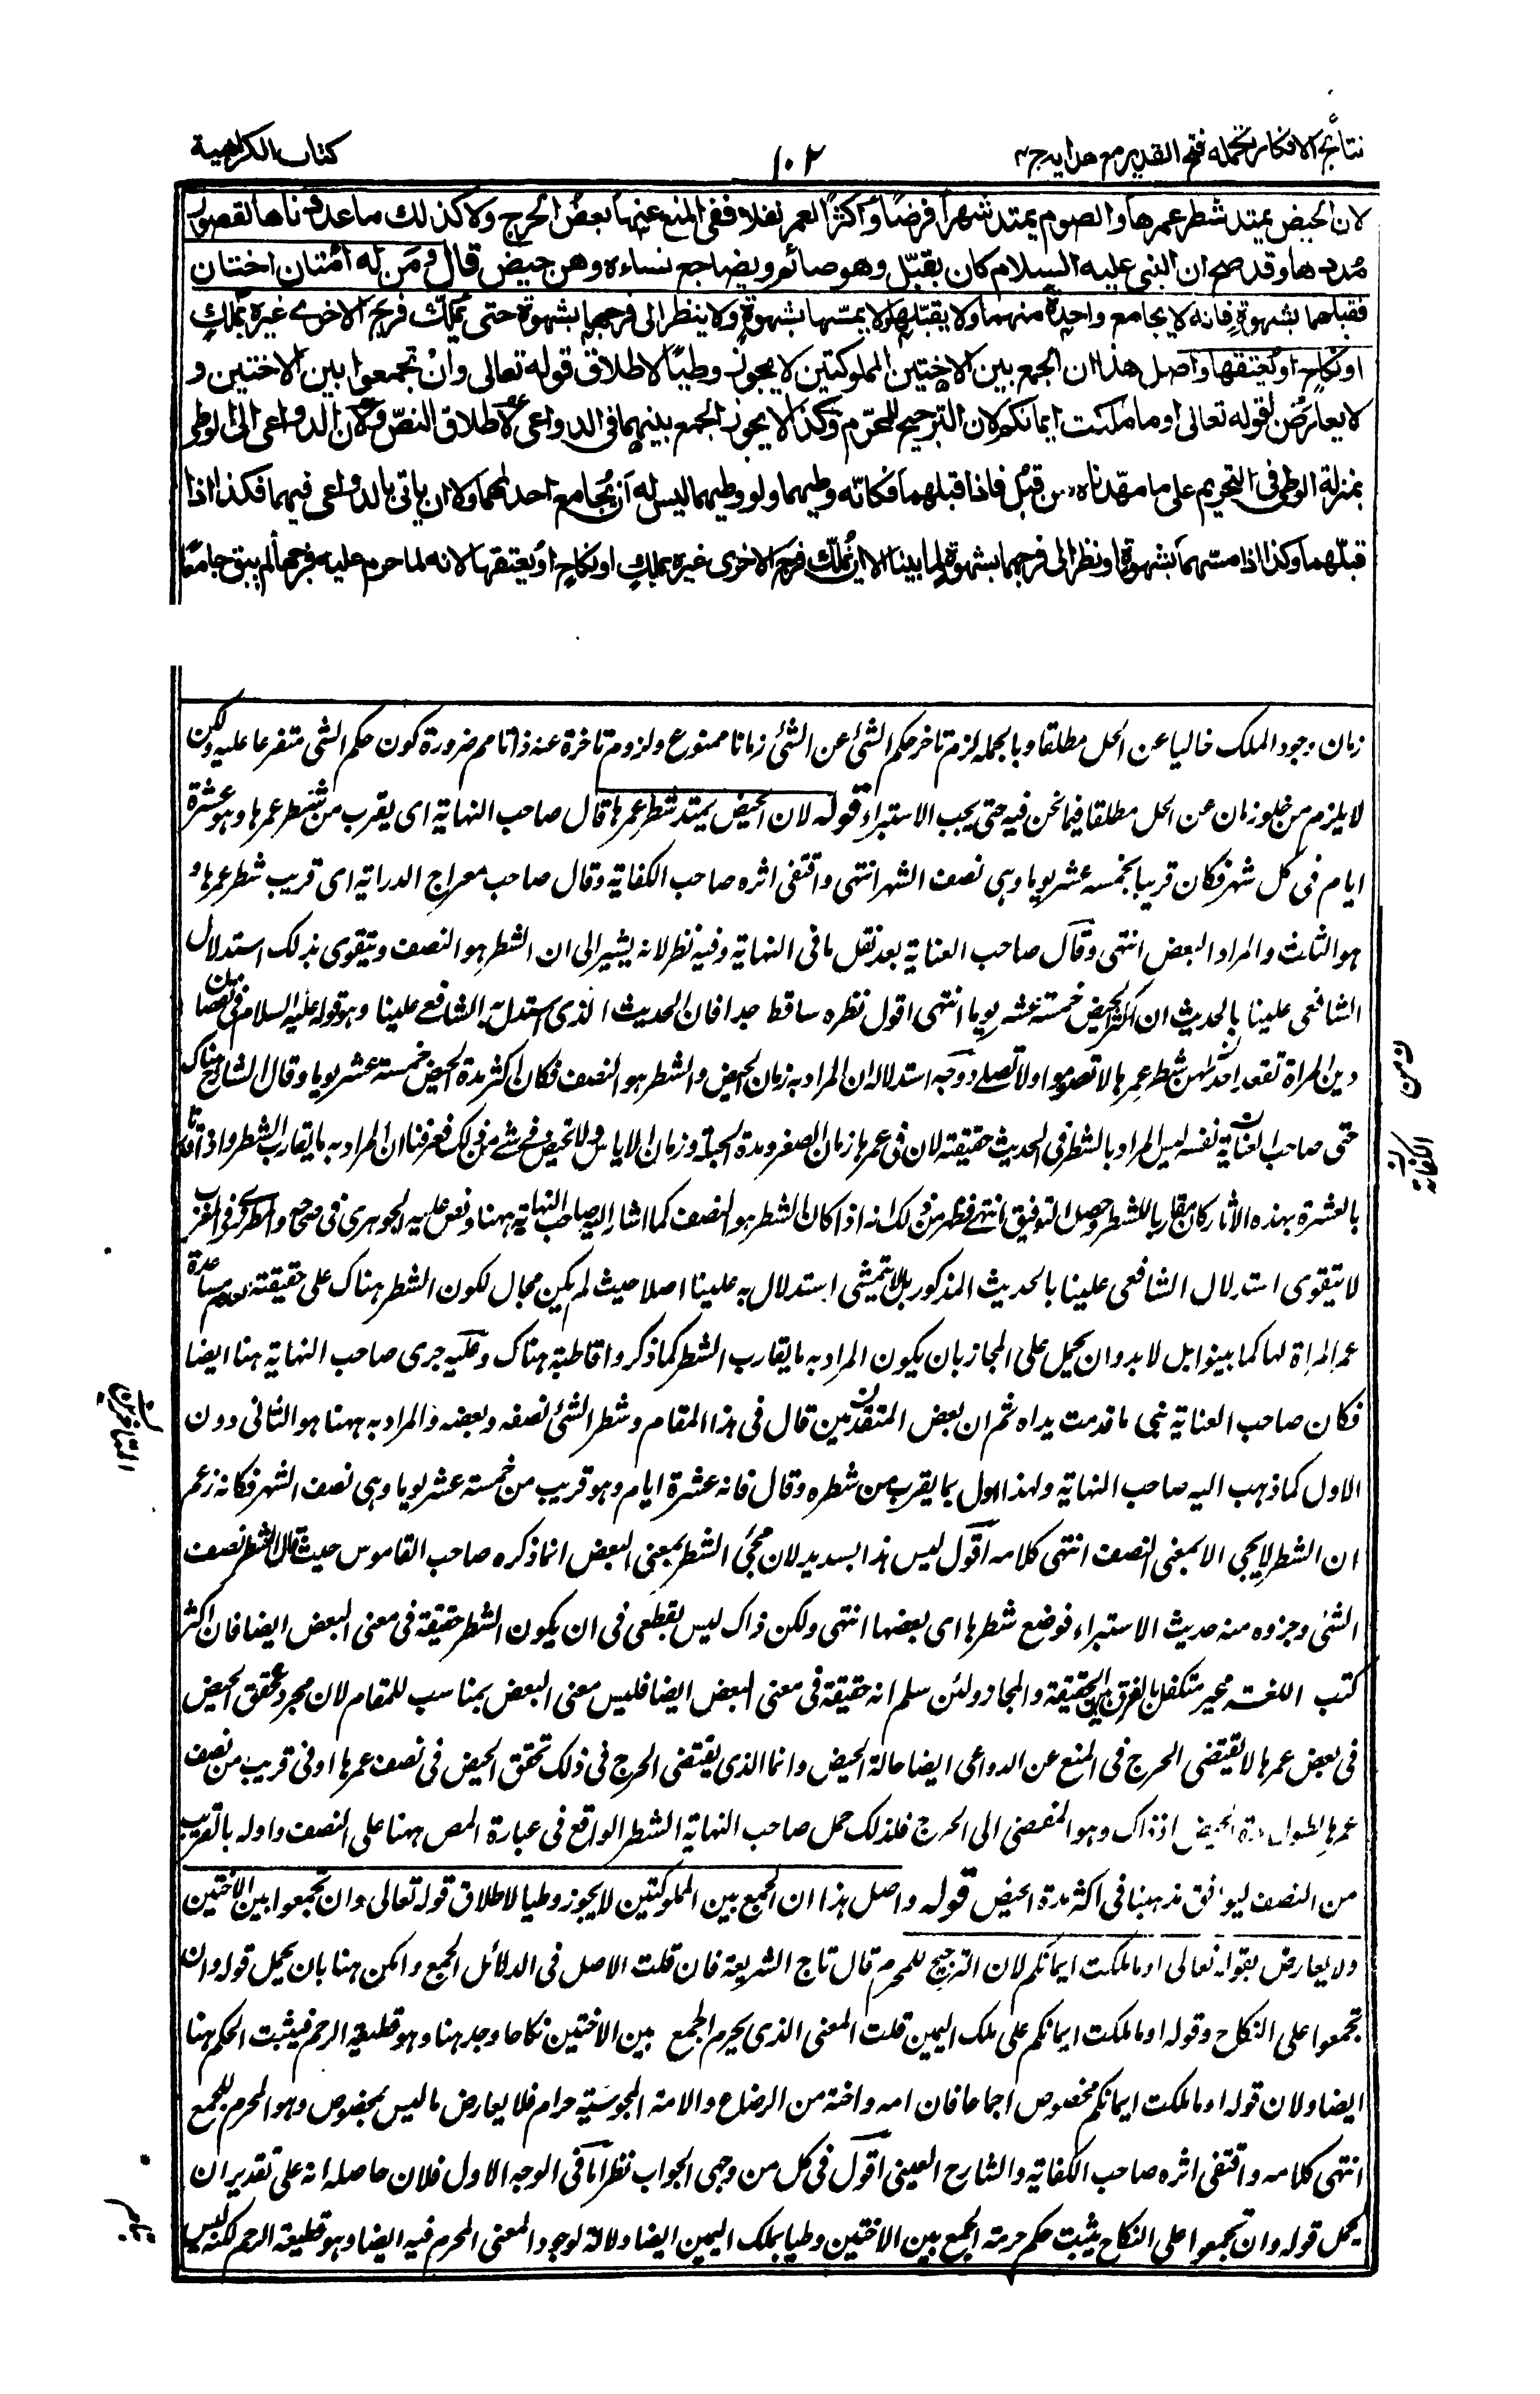 نتائج الافكار تكمله فتح القدير مع هدايه ج ٢
١٠٢
كتاب الكراهية
لان الحيض يمتد شطر عمرها والصوم يمتد شهرا فرضا واكثر العمر نفلا ففى المنع عنها بعض الحرج ولا كذلك ما عددناها لقصور
مُددها وقد صح ان النبى عليه السلام كان يقبّل وهو صائم ويضاجع نساءه وهن حيض قال ومَن له امتان اختان
فقبلهما بشهوةٍ فانه لا يجامع واحدةً منهما ولا يقبّلها ولا يمسّها بشهوةٍ ولا ينظر الى فرجها بشهوة حتى يملّك فرج الاخرى غيره بملكٍ
او نكاحٍ او يُعتقها واصل هذا ان الجمع بين الاختين المملوكتين لا يجوز وطيًا لاطلاق قوله تعالى وانْ تجمعوا بين الاختين و
لا يعارَض بقوله تعالى او ما ملكت ايمانكم لان الترجيح للمحرّم وكذا لا يجوز الجمع بينهما فى الدواعى لاطلاق النصّ ولان الدواعى الى الوطى
بمنزلة الوطى فى التحريم على ما مهّدناه من قبْل فاذا قبلهما فكانّه وطيهما ولو وطيهما ليس له ان يُجامع احدٰهما ولا ان ياتى بالدواعى فيهما فكذا اذا
قبّلهما وكذا اذا مسّهما بشهوة او نظر الى فرجهما بشهوةٍ لما بينا الا ان يُملّك فرج الاخرى غيره بملكٍ او نكاحٍ او يُعتقها لانه لما حرم عليه فرجها لم يبق جامعًا
زمان وجود الملك خاليا عن الحل مطلقا وبالجملة لزم تاخر حكم الشئ عن الشئ زمانا ممنوع ولزوم تاخره عنه ذاتا مم ضرورة كون حكم الشى متفرعا عليه ولكن
لا يلزم من خلو زمان عن الحل مطلقا فيما نحن فيه حتى يجب الاستبراء قوله لان الحيض يمتد شطر عمرها قال صاحب النهاية اى يقرب من شطر عمرها وهو عشرة
ايام فى كل شهر فكان قريبا بخمسة عشر يوما وهى نصف الشهر انتهى واقتفى اثره صاحب الكفاية وقال صاحب معراج الدراية اى قريب شطر عمرها و
هو الثلث والمراد البعض انتهى وقال صاحب العناية بعد نقل ما فى النهاية وفيه نظر لانه يشير الى ان الشطر هو النصف ويتقوى بذلك استدلال
الشافعى علينا بالحديث ان اكثر الحيض خمسة عشر يوما انتهى اقول نظره ساقط جدا فان الحديث الذى استدل به الشافعى علينا وهو قوله عليه السلام فى نقصان
دين المراة تقعد احدٰهن شطر عمرها لا تصوم ولا تصلى ووجه استدلاله ان المراد به زمان الحيض والشطر هو النصف فكان اكثر مدة الحيض خمسة عشر يوما وقال الشارح هناك
حتى صاحب العناية نفسه ليس المراد بالشطر فى الحديث حقيقته لان فى عمرها زمان الصغر ومدة الحبل وزمان الاياس ولا تحيض فى شئ من ذلك فعرفنا ان المراد به ما يقارب الشطر واذا قدرنا
بالعشرة بهذه الآثار كان مقاربا للشطر وحصل التوفيق انتهى فظهر من ذلك انه اذا كان الشطر هو النصف كما اشار اليه صاحب النهاية ههنا ونص عليه الجوهرى فى صحاحه والمطرزى فى المغرب
لا يتقوى استدلال الشافعى علينا بالحديث المذكور بل لا يتمشى استدلال به علينا اصلا حيث لم يكن مجال لكون الشطر هناك على حقيقته لعدم مساعدة
عمر المراة لها كما بينوا بل لا بد وان يحمل على المجاز بان يكون المراد به ما يقارب الشطر كما ذكروا قاطبة هناك وعليه جرى صاحب النهاية هنا ايضا
فكان صاحب العناية نسى ما قدمت يداه ثم ان بعض المتقدمين قال فى هذا المقام وشطر الشئ نصفه وبعضه والمراد به ههنا هو الثانى دون
الاول كما ذهب اليه صاحب النهاية ولهذا اول بما يقرب من شطره وقال فانه عشرة ايام وهو قريب من خمسة عشر يوما وهى نصف الشهر فكانه زعم
ان الشطر لا يجى الا بمعنى النصف انتهى كلامه اقول ليس هذا بسديد لان مجئ الشطر بمعنى البعض انما ذكره صاحب القاموس حيث قال الشطر نصف
الشئ وجزءه منه حديث الاستبراء فوضع شطرها اى بعضها انتهى ولكن ذاك ليس بقطعى فى ان يكون الشطر حقيقة فى معنى البعض ايضا فان اكثر
كتب اللغت غير متكفل بالفرق بين الحقيقة والمجاز ولئن سلم انه حقيقة فى معنى البعض ايضا فليس معنى البعض بمناسب للمقام لان مجرد تحقق الحيض
فى بعض عمرها لا يقتضى الحرج فى المنع عن الدواعى ايضا حالة الحيض وانما الذى يقتضى الحرج فى ذلك تحقق الحيض فى نصف عمرها او فى قريب من نصف
عمرها لطول مدة الحيض اذ ذاك وهو المفضى الى الحرج فلذلك حمل صاحب النهاية الشطر الواقع فى عبارة المص ههنا على النصف واوله بالقريب
من النصف ليوافق مذهبنا فى اكثر مدة الحيض قوله واصل هذا ان الجمع بين المملوكتين لا يجوز وطيا لاطلاق قوله تعالى وان تجمعوا بين الاختين
ولا يعارض بقوله تعالى او ما ملكت ايمانكم لان الترجيح للمحرم قال تاج الشريعة فان قلت الاصل فى الدلائل الجمع وامكن هنا بان يحمل قوله وان
تجمعوا على النكاح وقوله او ما ملكت ايمانكم على ملك اليمين قلت المعنى الذى يحرم الجمع بين الاختين نكاحا وجد هنا وهو قطيعة الرحم فيثبت الحكم هنا
ايضا ولان قوله او ما ملكت ايمانكم مخصوص اجماعا فان امه واخته من الرضاع والامة المجوسية حرام فلا يعارض ما ليس بمخصوص وهو المحرم للجمع
انتهى كلامه واقتفى اثره صاحب الكفاية والشارح العينى اقول فى كل من وجهى الجواب نظر اما فى الوجه الاول فلان حاصله انه على تقدير ان
يحمل قوله وان تجمعوا على النكاح يثبت حكم حرمة الجمع بين الاختين وطيا بملك اليمين ايضا دلالة لوجود المعنى المحرم فيه ايضا وهو قطيعة الرحم لكنه ليس
المتاخرين